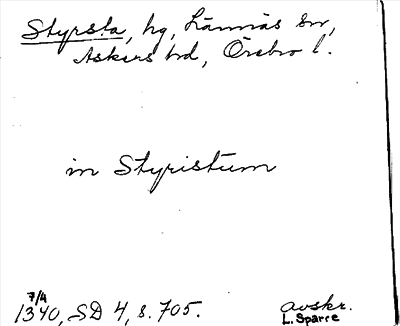 Styrsta, hg, Lännäs sn,
Askers hd, Örebro l.
in Styristum
7/4
1340, SD 4, s. 705.
avskr.
L. Sparre